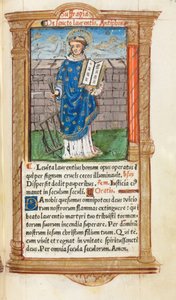 De sancto laurentio. Antiphona
Leuita laurentius bonum opus operatus est
qui per signum crucis cecos illuminauit.
Dispersit dedit pauperibus. Iusticia ei
manet in seculum seculi. Oratio.
Da nobis quesumus omnipotens deus vitio
rum nostrorum flammas extinguere: qui
beato laurentio martyri tuo tribuisti tormen
torum suorum incendia superare. Per domi
num nostrum iesum christum filium tuum. Qui te
cum viuit et regnat in vnitate spiritussancti
deus. Per omnia secula seculorum. Amen.